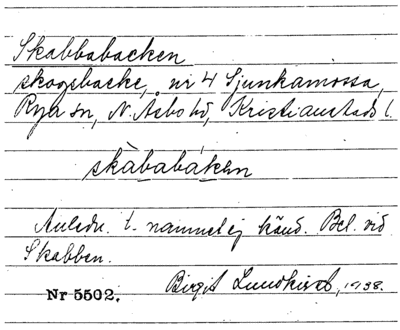 Skabbabacken
skogsbacke, nr 4 Sjunkamossa,
Rya sn, N. Åsbo hd, Kristianstads l.
skàbabáken
Anledn. t. namnet ej känd. Bel. vid
Skabben.
Birgit Lundkvist, 1938.
Nr 5502.